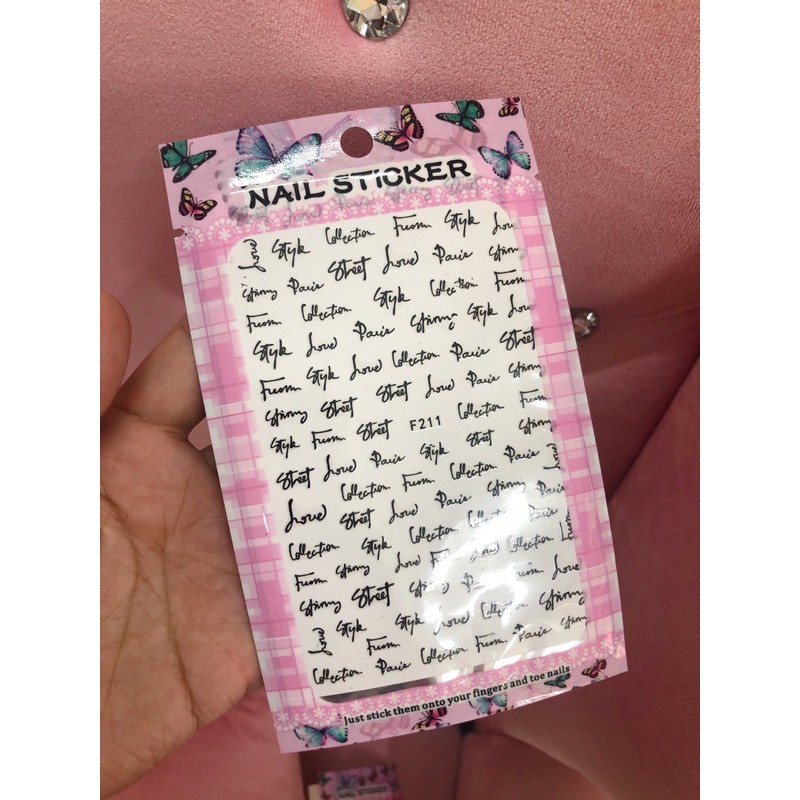 NAIL STICKER
Love Style Collection From Style Love
Paris Street Love Paris
From Collection Style Collection From
Style Love Paris Style Love
From Style Love Collection Paris Street
Street Street Love Paris
Style From Street F211 Collection From
Street Love Paris Style Street
Collection From Collection Paris Love
Love Street Love Paris Paris
Collection Style Collection Paris
From Love Love Collection From
Street From Love
Love Style From Style Love Collection
Collection Paris Collection From Paris
Just stick them onto your fingers and toe nails
NAIL STICKER